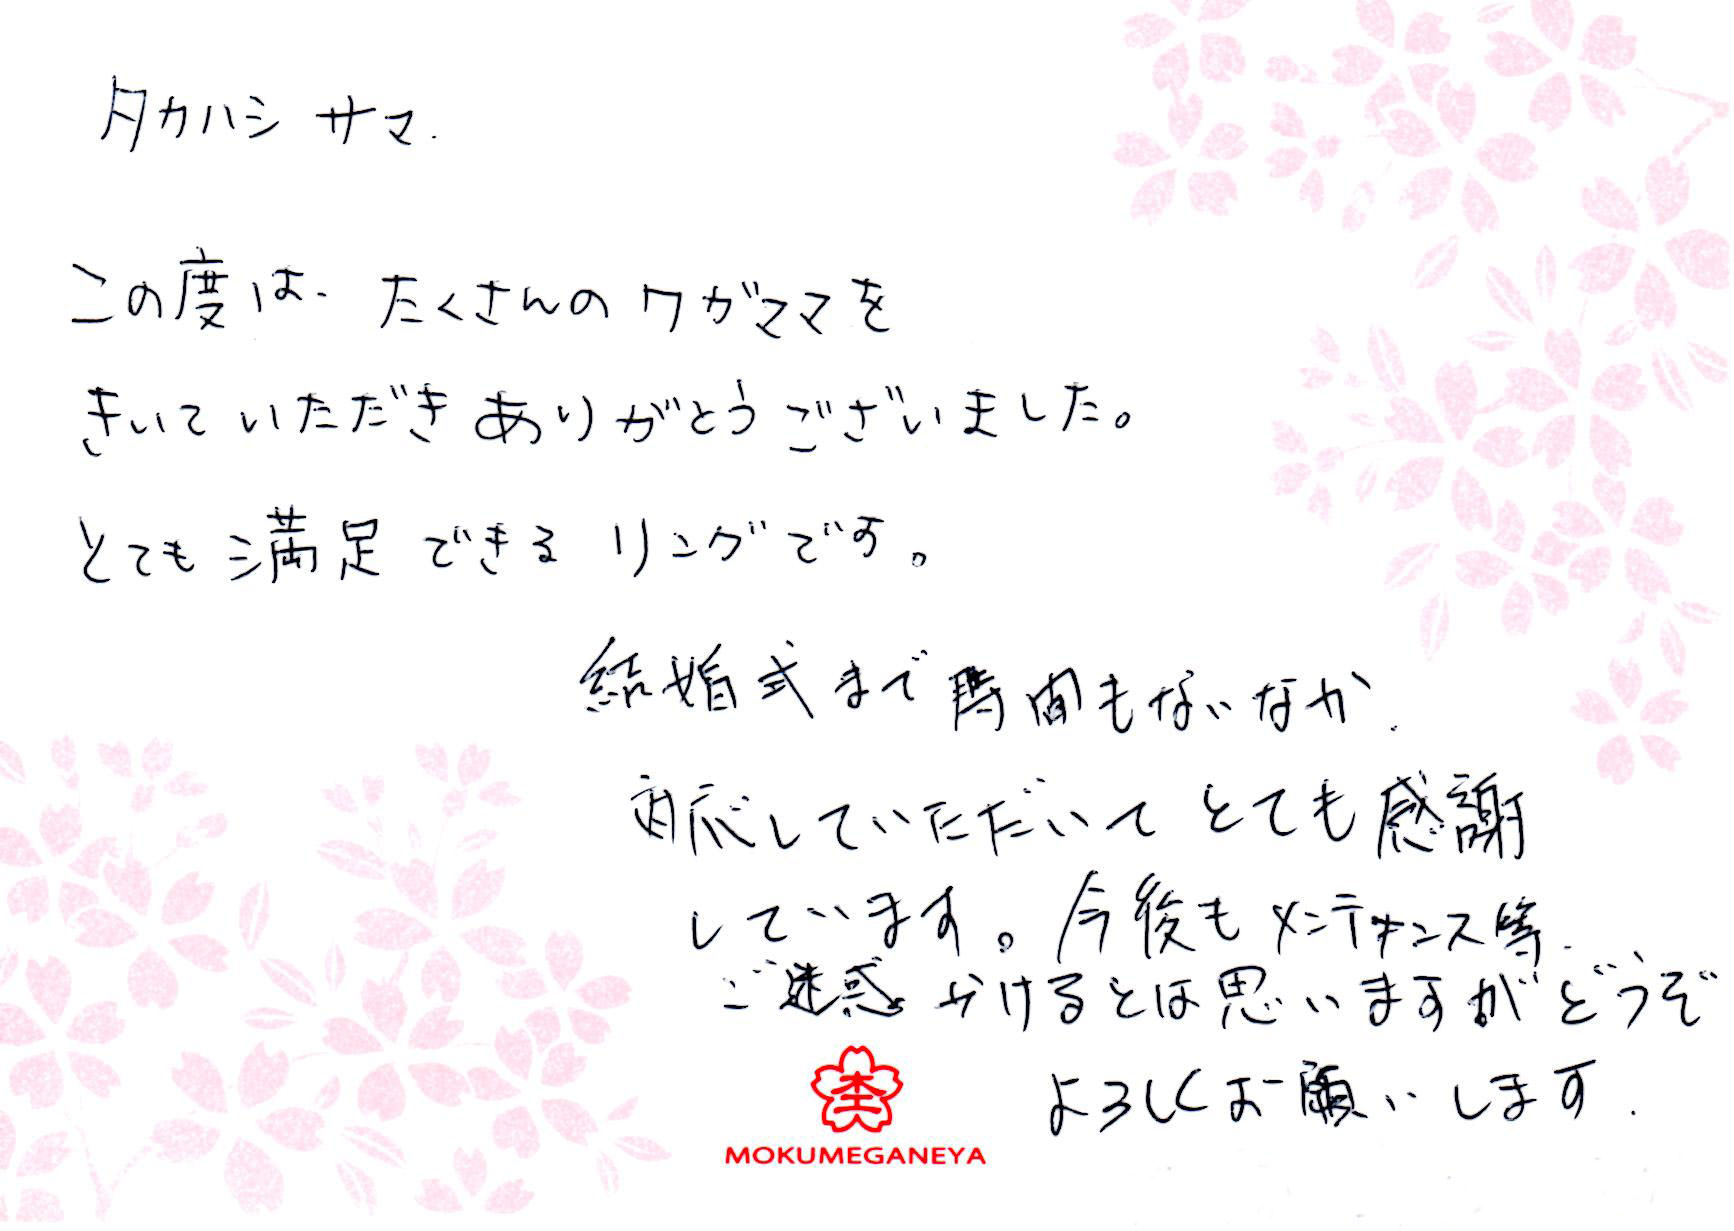 タカハシ サマ.
この度は. たくさんの ワガママを
きいて いただき ありがとうございました。
とても 満足 できる リングです。
結婚式まで 時間もないなか.
対応していただいて とても感謝
しています。今後も メンテナンス等.
ご迷惑 かけるとは思いますが どうぞ
よろしくお願いします.
杢
MOKUMEGANEYA